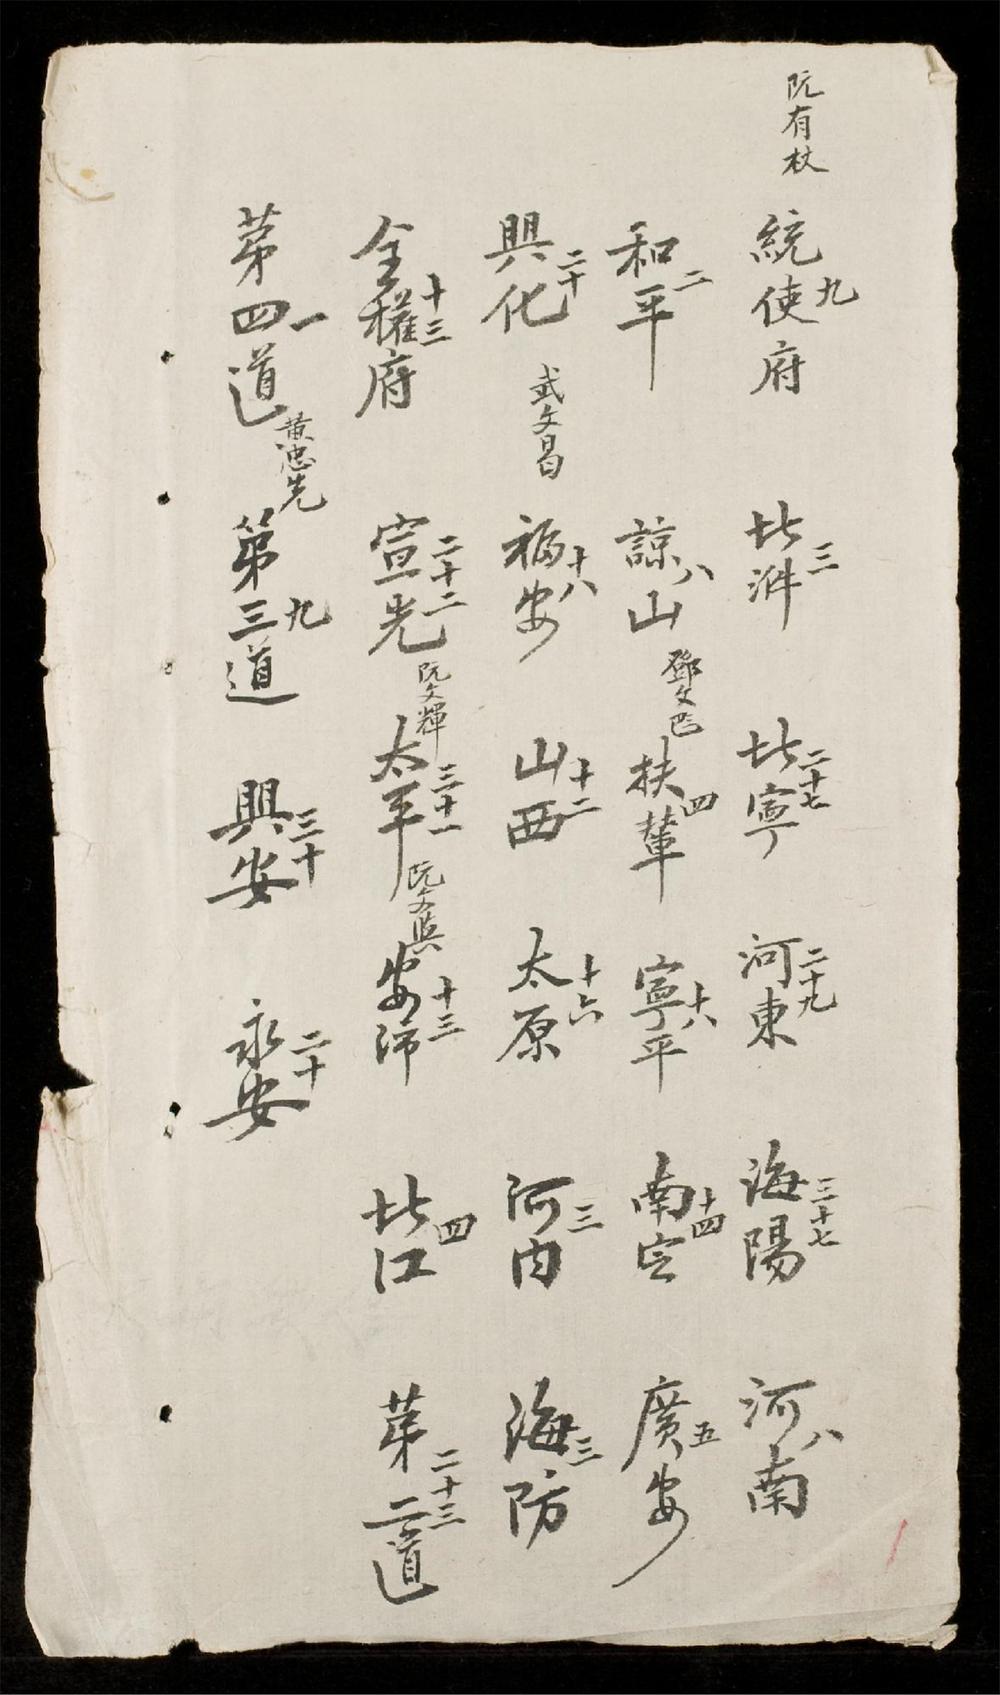 阮有杖
統使府 九
北泮 三
北寧 二十七
河東 二十九
海陽 三十七
河南 八
和平 二
諒山 八
鄧文
扶輦 四
寧平 十八
南定 十四
廣安 五
興化 二十
武文昌
福安 十八
山西 十二
太原 十六
河内 三
海防 三
全權府 十三
宣光 二十二
阮文輝
太平 三十一
阮文
安沛 十三
北江 四
苐二道 二十三
苐四道 一
黄忠先
第三道 九
興安 三十
永安 二十